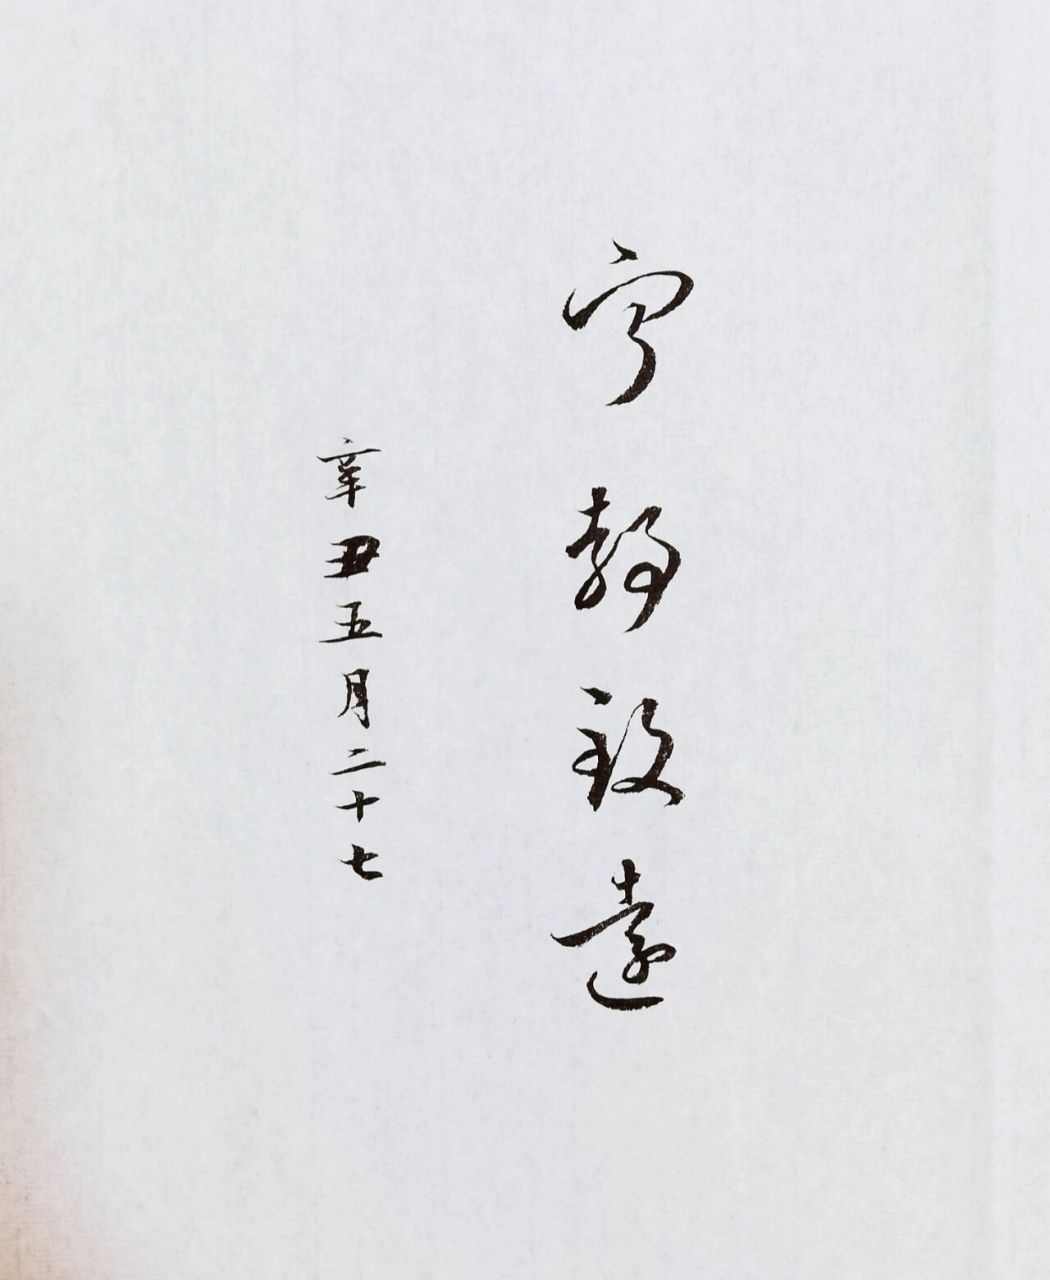 宁静致遠
辛丑五月二十七